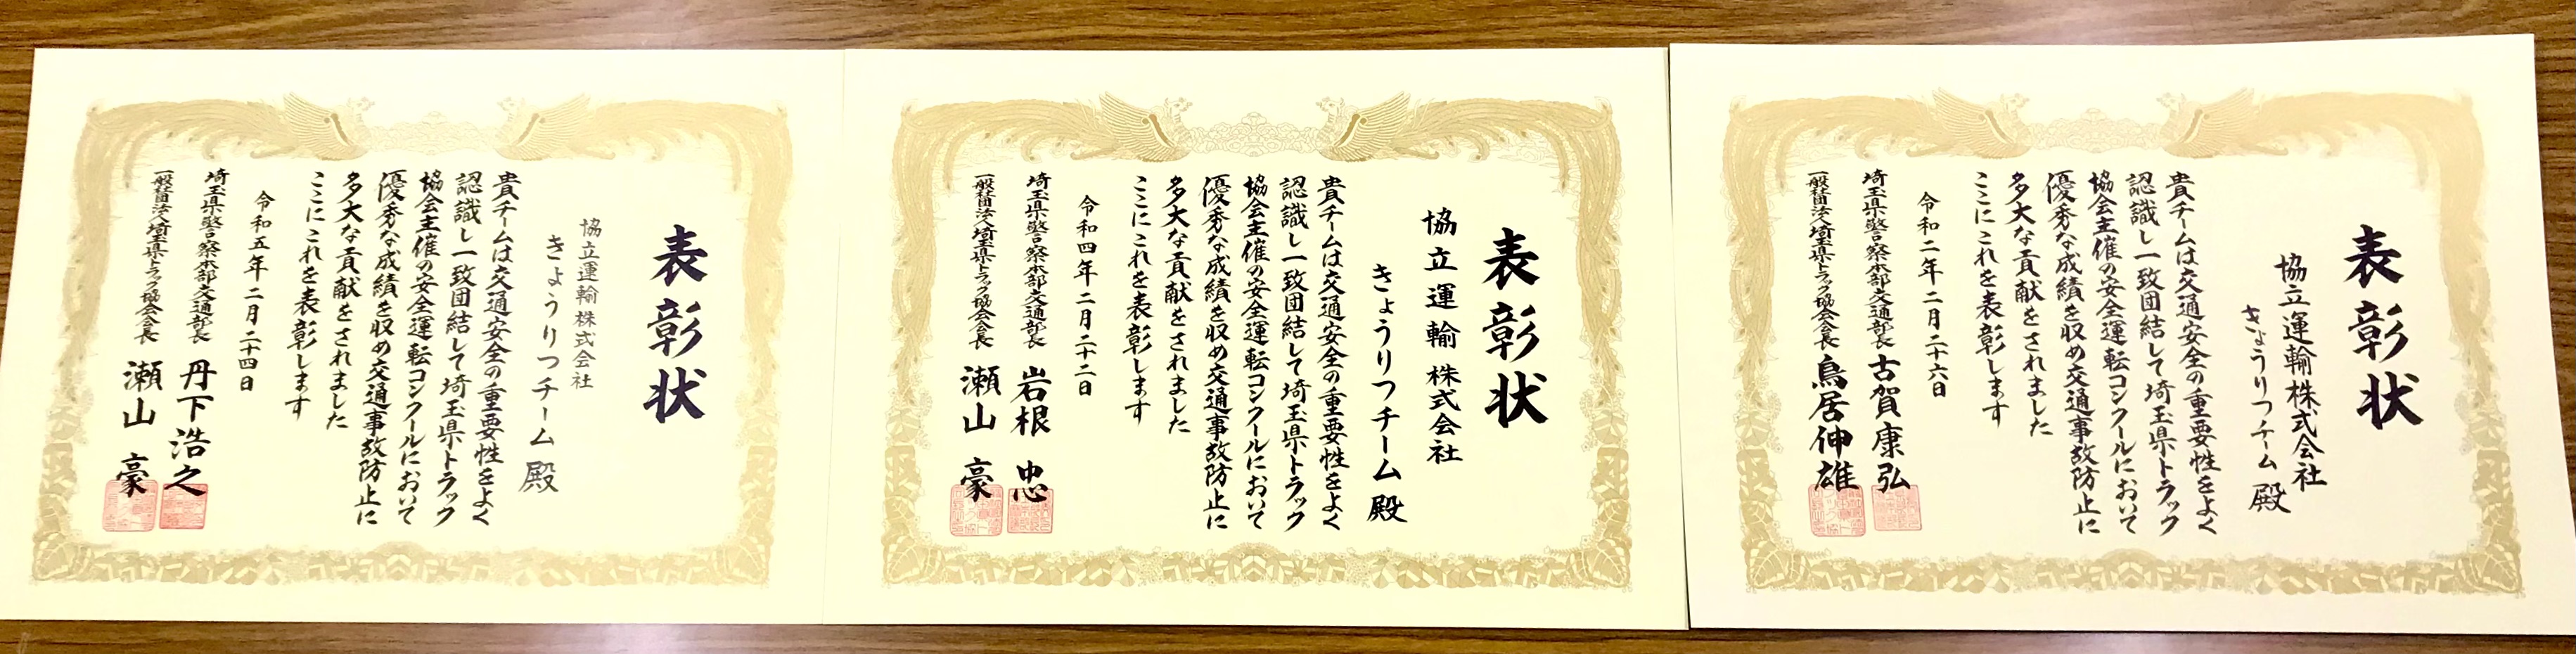 表彰状
協立運輸株式会社
きょうりつチーム 殿
貴チームは交通安全の重要性をよく
認識し一致団結して埼玉県トラック
協会主催の安全運転コンクールにおいて
優秀な成績を収め交通事故防止に
多大な貢献をされました
ここにこれを表彰します
令和二年二月二十六日
埼玉県警察本部交通部長 古賀康弘
一般社団法人埼玉県トラック協会会長 鳥居伸雄
表彰状
協立運輸株式会社
きょうりつチーム 殿
貴チームは交通安全の重要性をよく
認識し一致団結して埼玉県トラック
協会主催の安全運転コンクールにおいて
優秀な成績を収め交通事故防止に
多大な貢献をされました
ここにこれを表彰します
令和四年二月二十二日
埼玉県警察本部交通部長 岩根 忠
一般社団法人埼玉県トラック協会会長 瀬山 豪
表彰状
協立運輸株式会社
きょうりつチーム 殿
貴チームは交通安全の重要性をよく
認識し一致団結して埼玉県トラック
協会主催の安全運転コンクールにおいて
優秀な成績を収め交通事故防止に
多大な貢献をされました
ここにこれを表彰します
令和五年二月二十四日
埼玉県警察本部交通部長 丹下浩之
一般社団法人埼玉県トラック協会会長 瀬山 豪